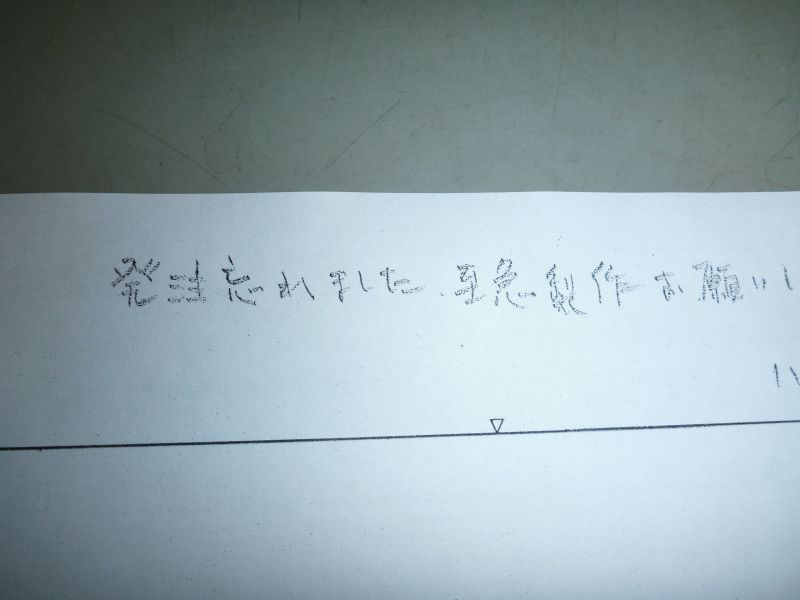 発注忘れました、至急製作お願いし